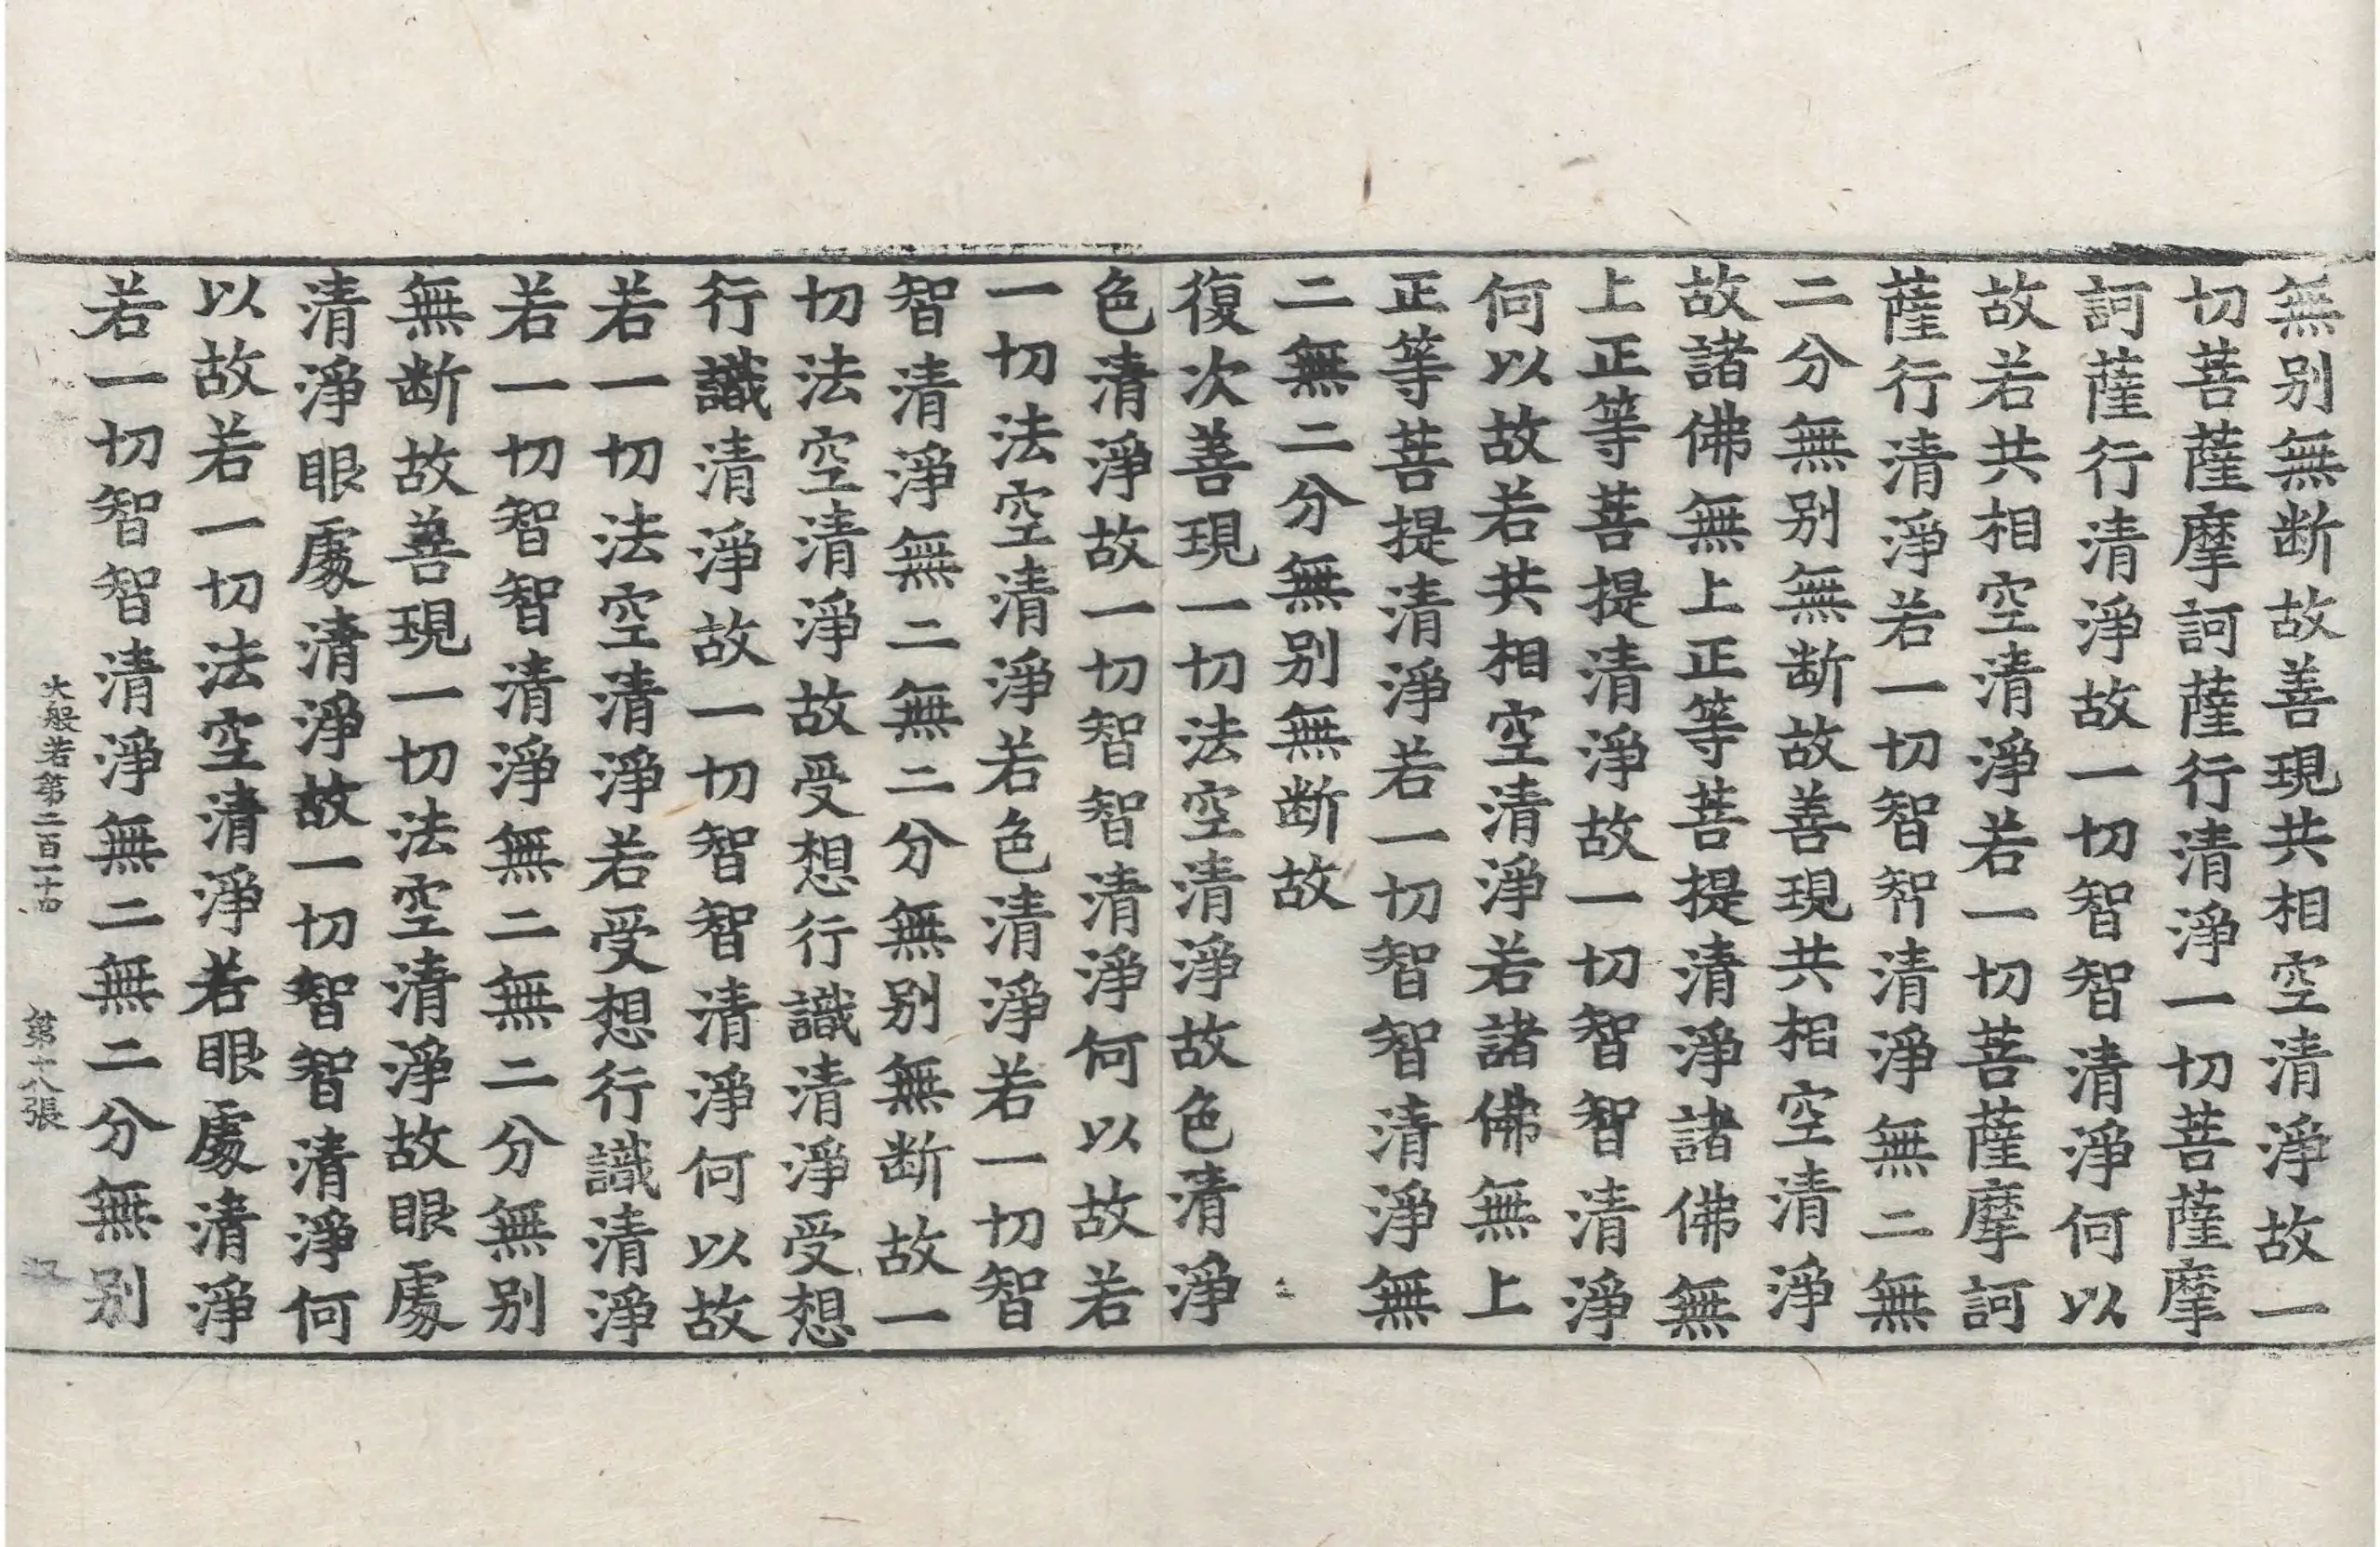 無别無断故善現共相空清淨故一
切菩薩摩訶薩行清淨一切菩薩摩
訶薩行清淨故一切智智清淨何以
故若共相空清淨若一切菩薩摩訶
薩行清淨若一切智智清淨無二無
二分無别無断故善現共相空清淨
故諸佛無上正等菩提清淨諸佛無
上正等菩提清淨故一切智智清淨
何以故若共相空清淨若諸佛無上
正等菩提清淨若一切智智清淨無
二無二分無别無断故
復次善現一切法空清淨故色清淨
色清淨故一切智智清淨何以故若
一切法空清淨若色清淨若一切智
智清淨無二無二分無别無断故一
切法空清淨故受想行識清淨受想
行識清淨故一切智智清淨何以故
若一切法空清淨若受想行識清淨
若一切智智清淨無二無二分無别
無断故善現一切法空清淨故眼處
清淨眼處清淨故一切智智清淨何
以故若一切法空清淨若眼處清淨
若一切智智清淨無二無二分無别
大般若第二百一十 第十八張